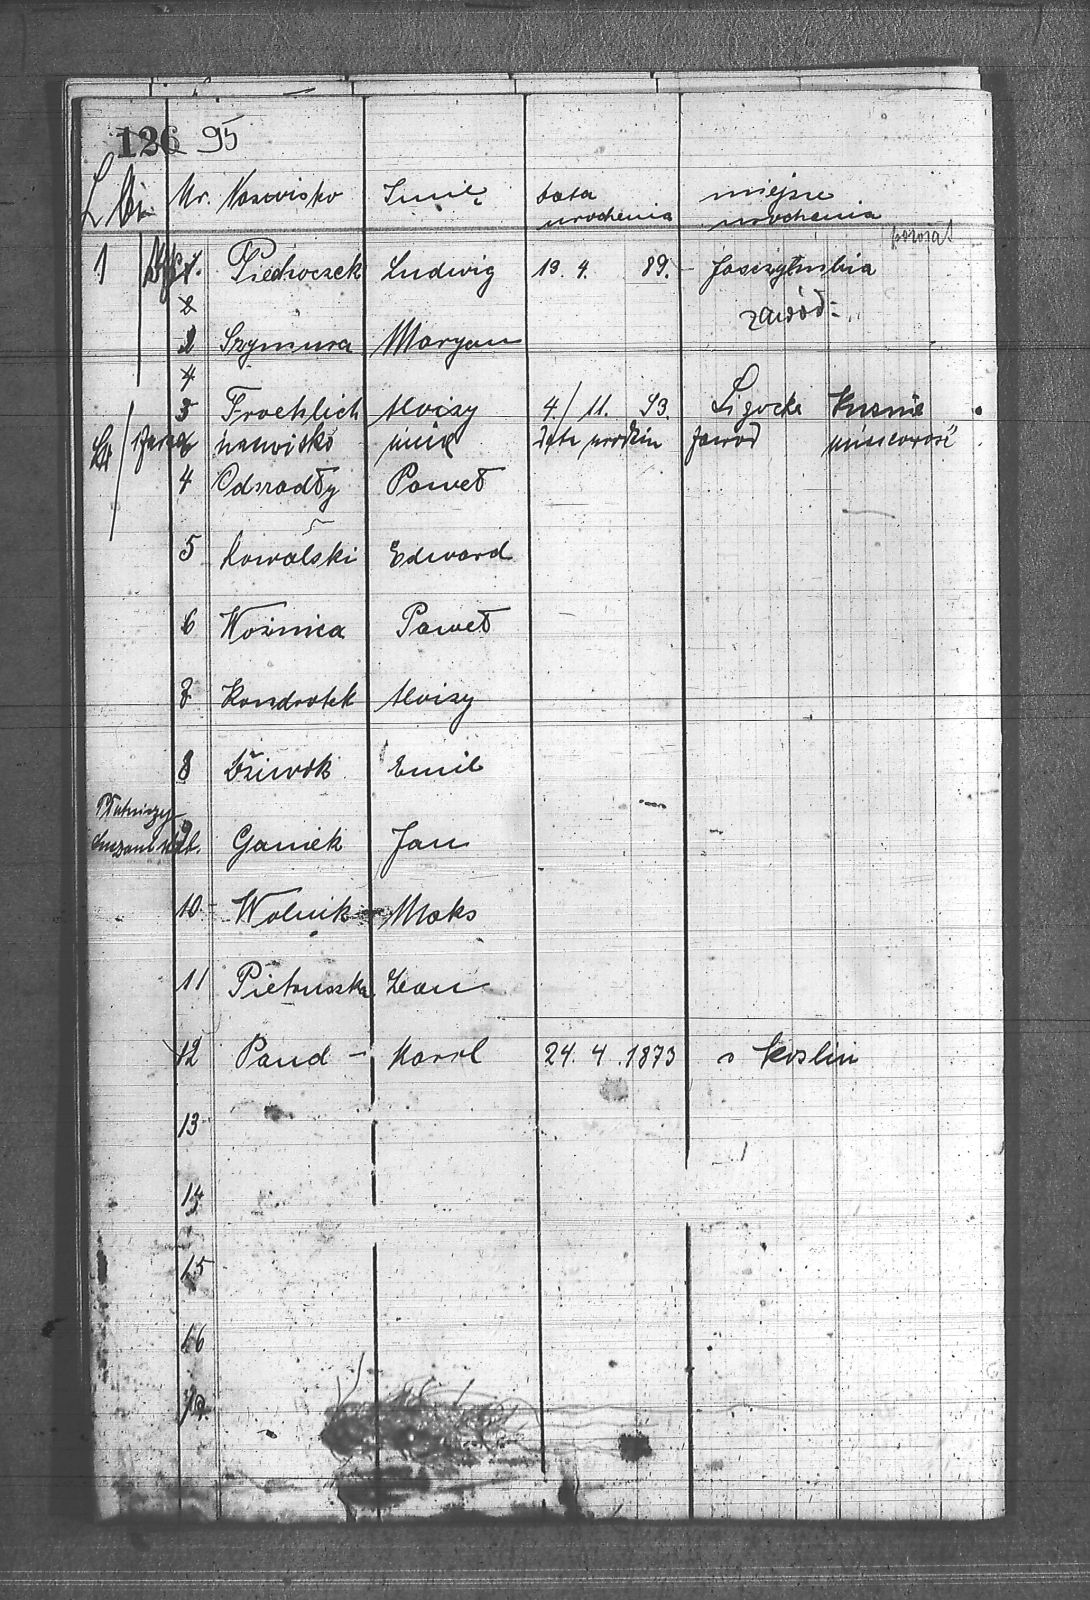 126 95
Nr. Nazwisko Imię data miejsce
urodzenia urodzenia
1 Piechoczek Ludwig 19. 4. 89. - Jastrzymbia
zawód:
2 Szymura Maryan
4
3 Froehlich Aloizy 4/11. 93. Ligocka Kuznia
nazwisko imię data urodzin zawód miejscowość
4 Odszadły Paweł
5 Kowalski Edward
6 Woźnica Paweł
7 Kondrotek Aloizy
8 Emil
9 Ganiek Jan
10 - Wolnik - Maks
11 Pietruszka Leon
12 Pand - Karol 24. 4. 1873 Koslin
13
14
15
16